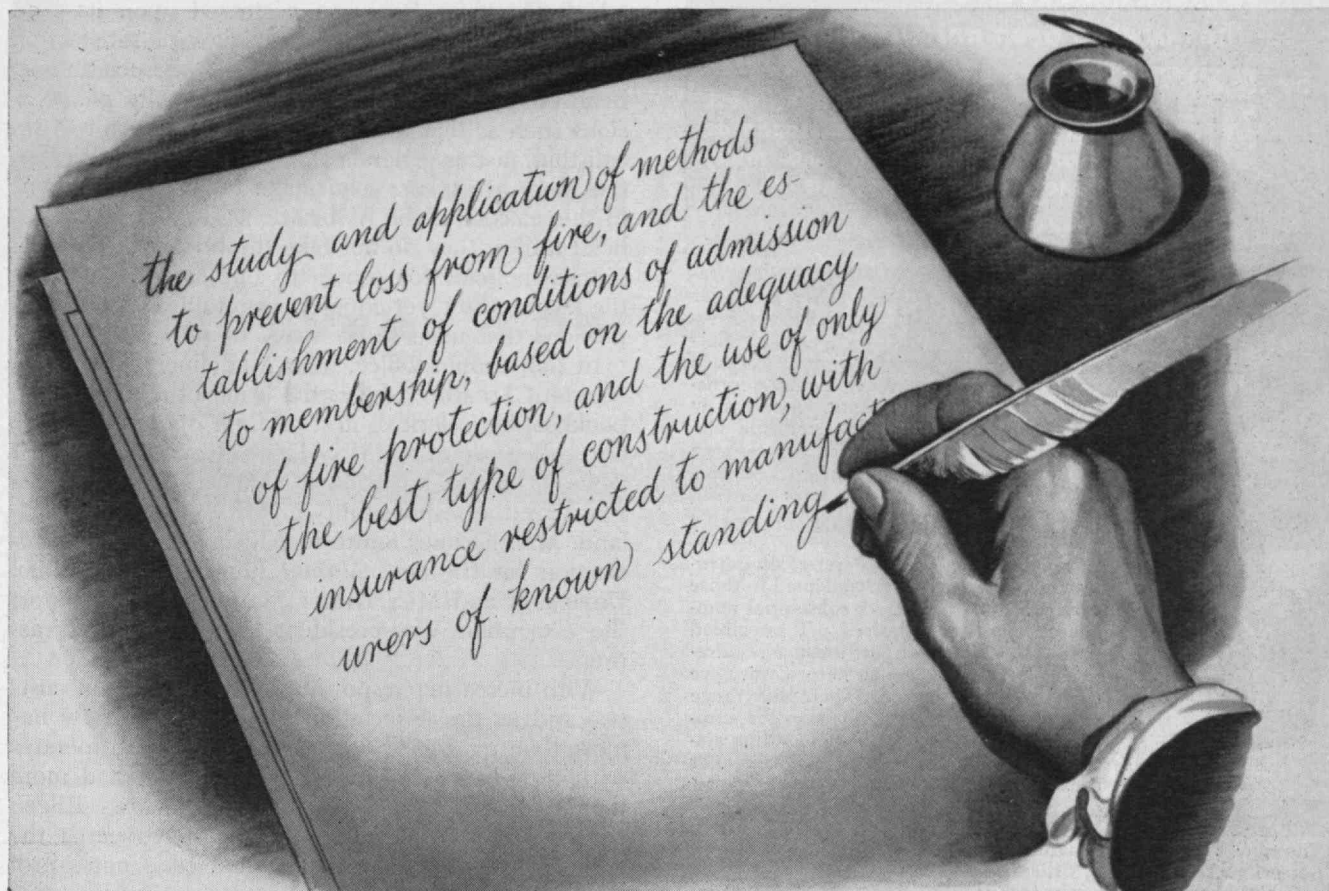 the study and application of methods
to prevent loss from fire, and the es-
tablishment of conditions of admission
to membership, based on the adequacy
of fire protection, and the use of only
the best type of construction, with
insurance restricted to manufact
urers of known standing